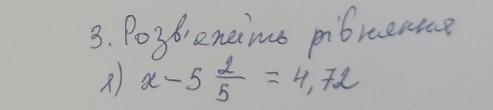 3. Розв'яжіть рівняння
1) x - 5 2/5 = 4,72